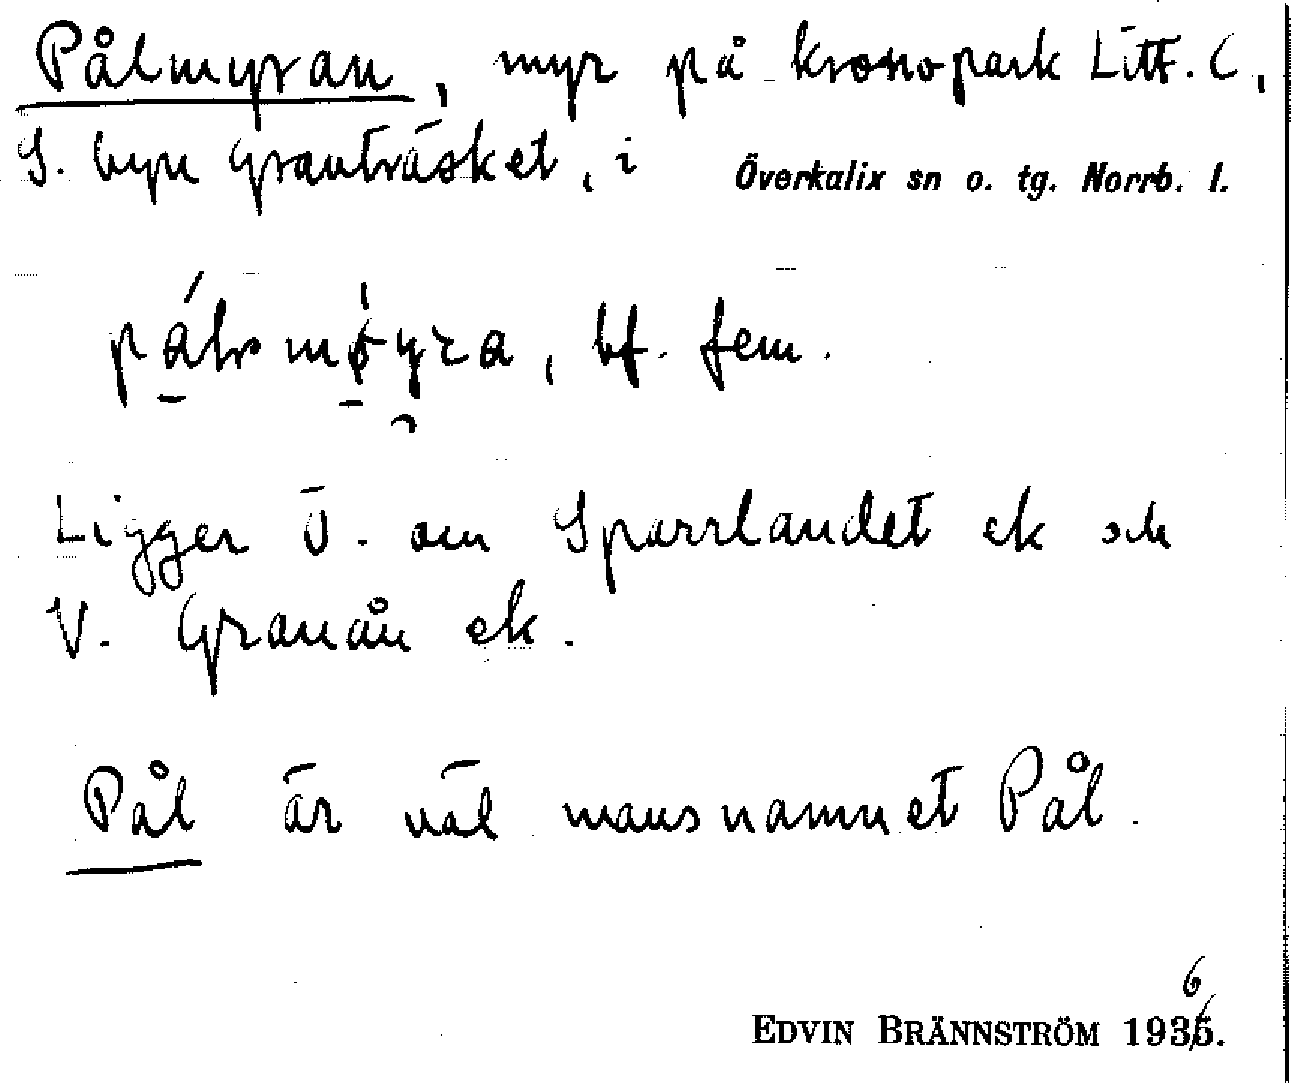 Pålmyran, myr på kronopark Litt. C,
S. byn Granträsket, i Överkalix sn o. tg. Norrb. l.
bf. fem.
Ligger Ö. om Sparrlandet ek och
V. Granån ek.
Pål är väl mansnamnet Pål.
6
EDVIN BRÄNNSTRÖM 1935.